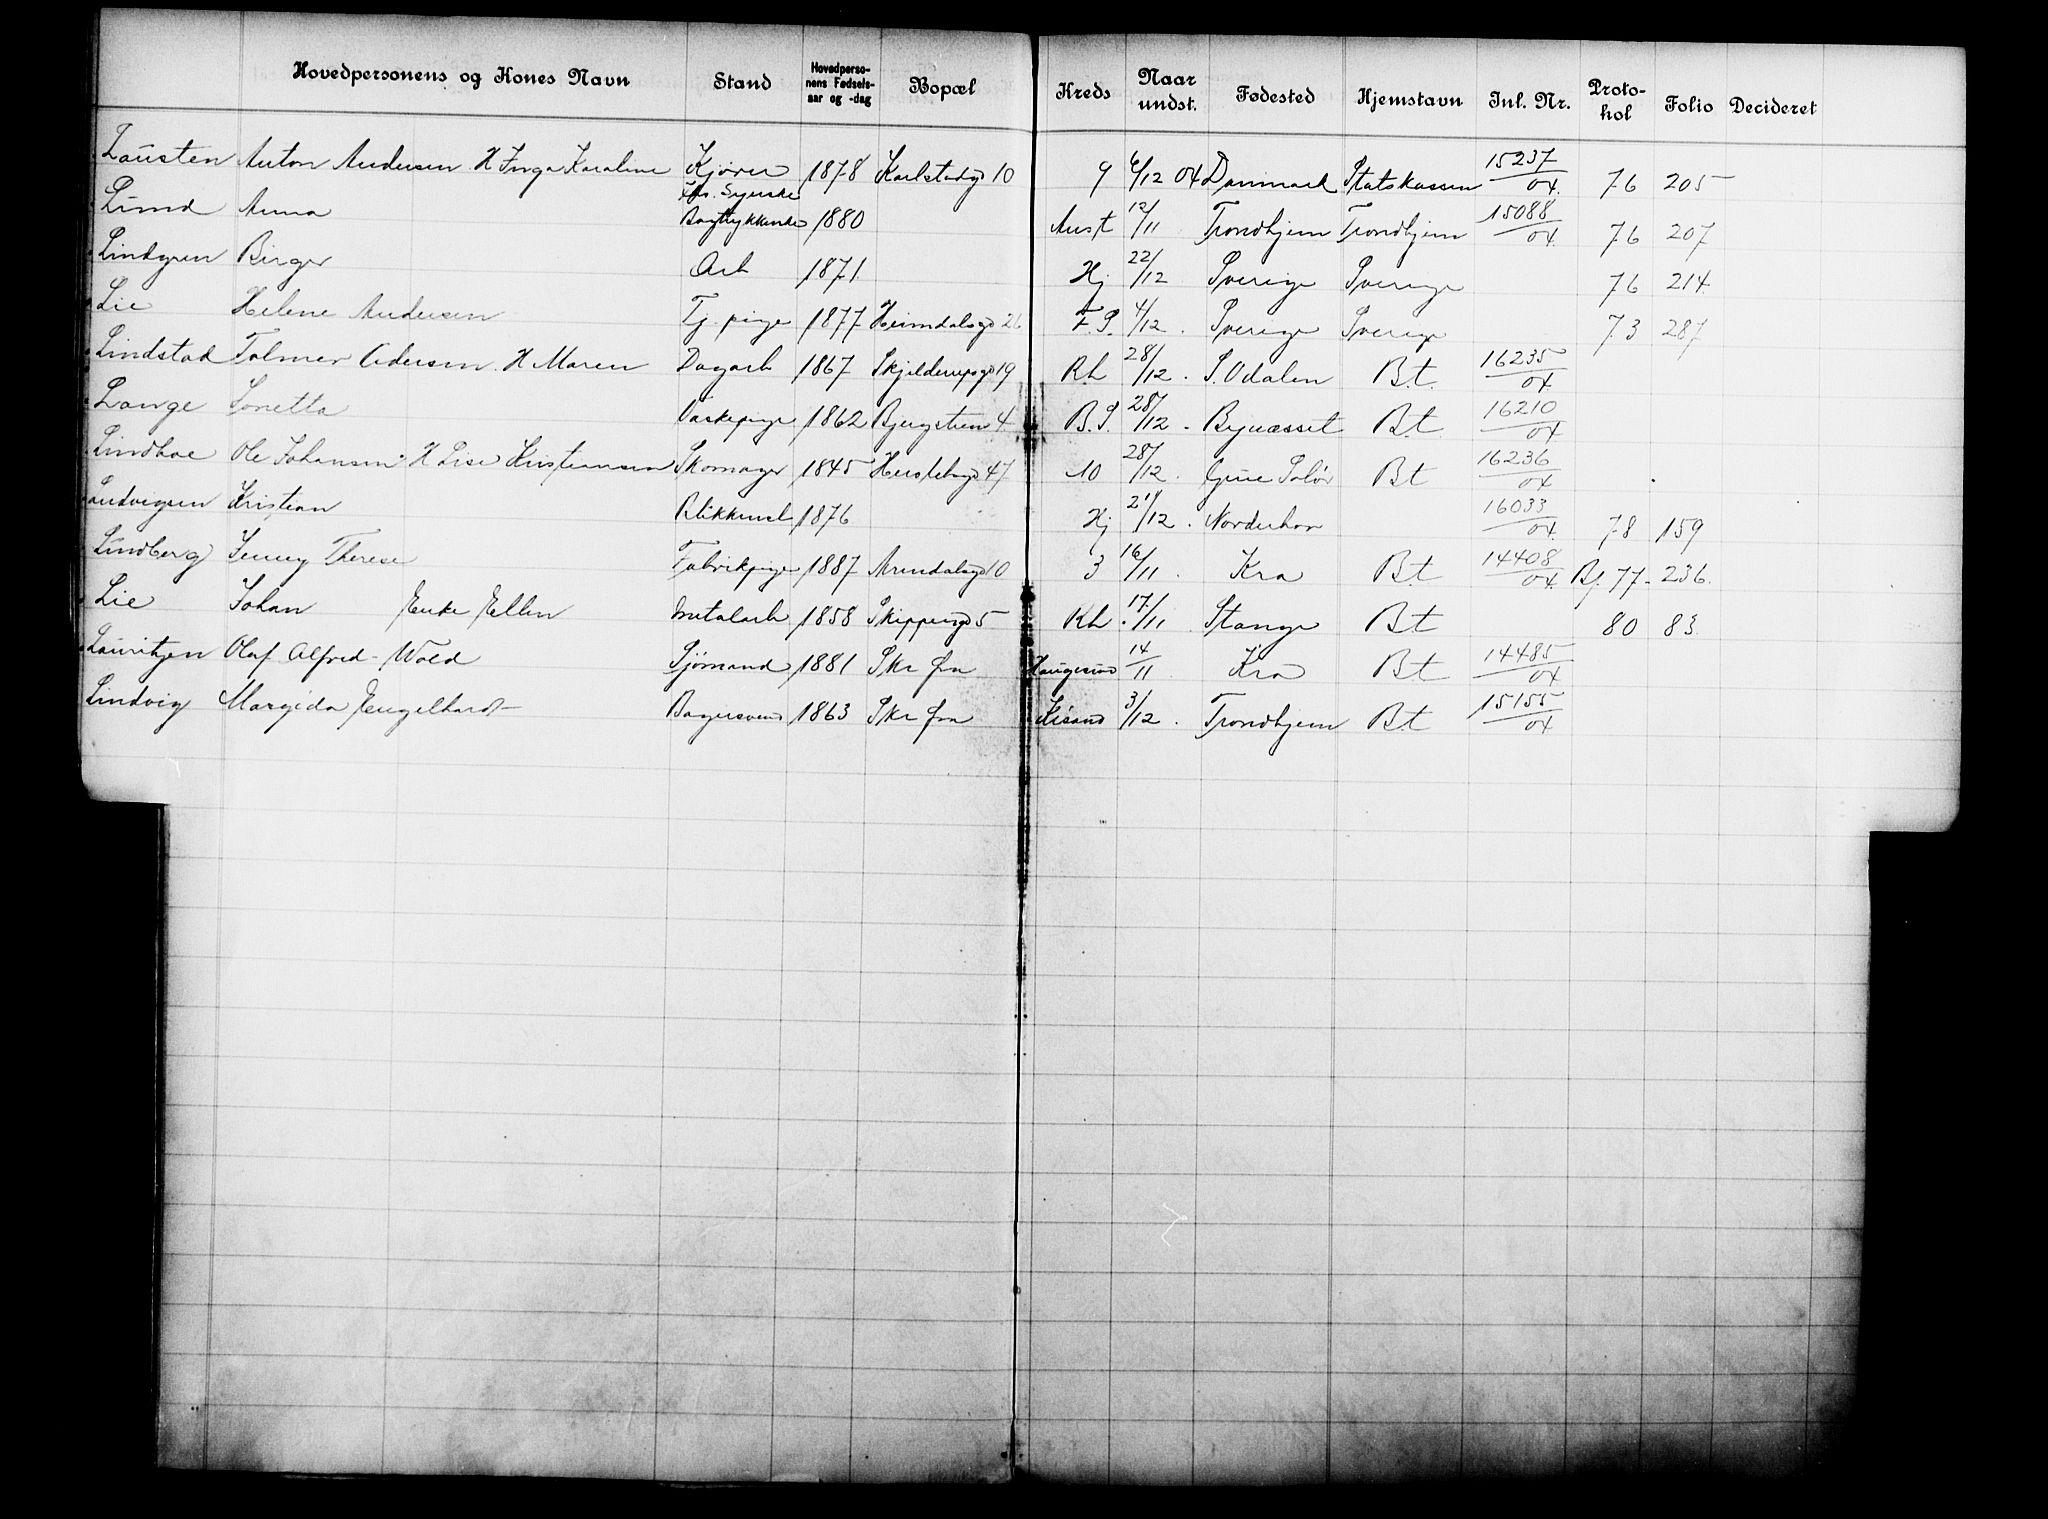 Hovedpersonens og Kones Navn Stand Hovedperso-nens Fødsels-aar og -dag Bopæl Kreds Naar undst. Fødested Hjemstavn Inl. Nr. Proto-kol Folio Decideret
Lausten Anton Andersen H Inga Karaline Kjører 1878 Karlstadgd 10 9 6/12 04 Danmark Statskassen 15237/04. 76 205
Lund Anna Syerske 1880 Aust 12/11 Trondhjem Trondhjem 15088/04. 76 207
Lindgren Birger Arb 1871. Hj 22/12 Sverige Sverige 76 214
Lie Helene Andersen Tj. pige 1877 Heimdalsgd 26 F.S. 4/12. Sverige Sverige 73 287
Lindstad Tolmer H Maren Dagarb 1867 Skjelderupsgd 19 Rh 28/12. S. Odalen B.t. 16235/04.
Lange Vaskepige 1862 Bjergstien 4 B.S. 28/12. Bynæsset B.t. 16210/04
Ole Johansen H Lise Kristiansen Skomager 1845 Herslebsgd 47 10 28/12. Grue Solør Bt 16236/04
Ludvigsen Kristian Blikkensl 1876 Hj 21/12. Norderhov 16033/04. 78 159
Lindberg Jenny Therese Fabrikpige 1887 Arendalsgd 10 3 16/11. Kra Bt 14408/04. Bj. 77- 236.
Lie Johan Enke Ellen Metalarb 1858 Skippergd 5 Kh. 17/11 Stange Bt 80 83.
Lauritzen Olaf Alfred Wold Sjømand 1881 Skr fra Haugesund 14/11. Kra Bt 14485/04
Lindvig Margido Engelhardt Bagersvend 1863 Skr fra Krsand 3/12. Trondhjem Bt 15155/04